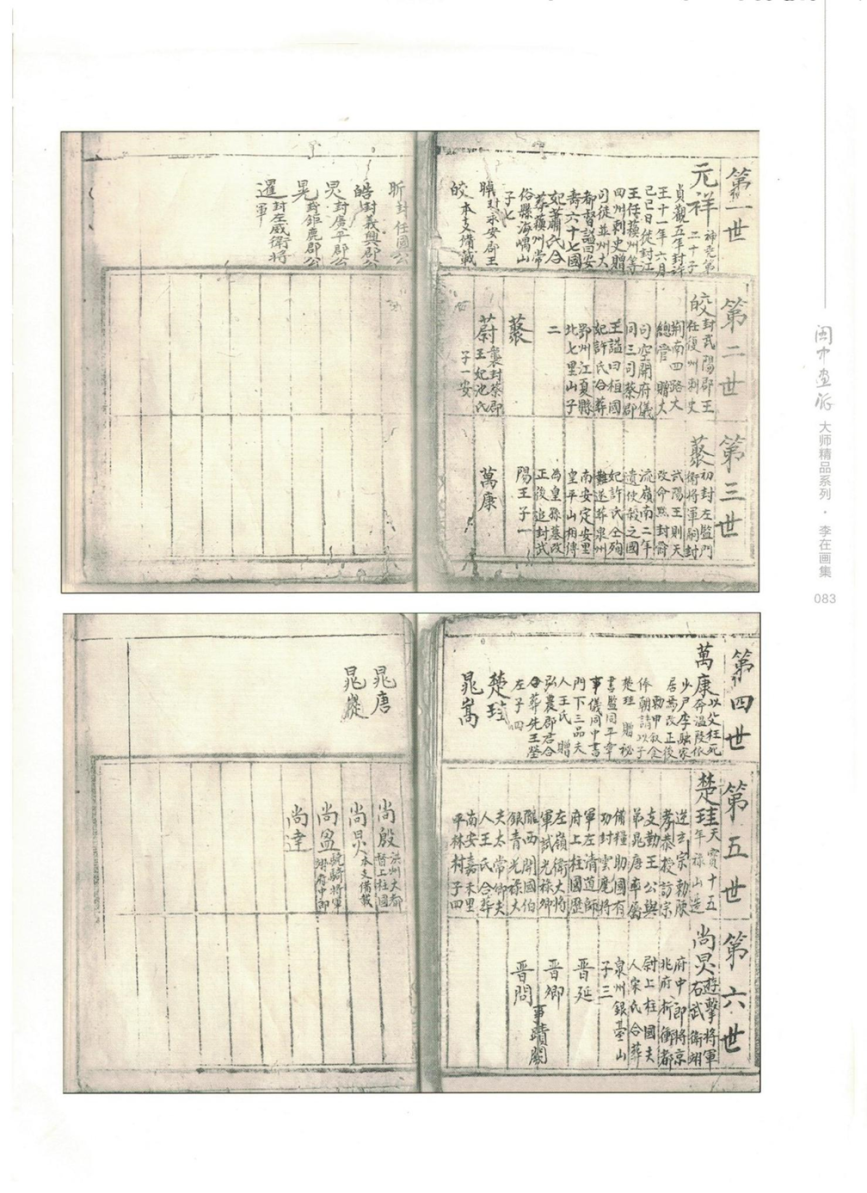 第一世
元祥 神尧第
二十子
貞觀五年封許
王十一年六月
己巳日徙封江
王任蘇州等
四州刺史贈
司徒并州大
都督諡曰安
壽六十七國
妃蕭氏合
葬蘇州常
俗縣海嵎山
子七
封永安郡王
皎 本支備載
昕 封任國公
皓 封義興郡公
炅 封廣平郡公
晃 封鉅鹿郡公
暹 封左威衛將
軍
第二世
皎 封武陽郡王
任復州刺史
荊南四路大
總管 贈大
司空開府儀
同三司蔡郡
王諡曰祖國
妃許氏合葬
鄂州江夏縣
北七里山子
二
蔡
蔚 襲封蔡郡
王妃池氏
子一安
第三世
蔡 初封左監門
衛將軍嗣封
武陽王則天
改命無封爵
流嶺南二年
遣使殺之國
妃許氏仝殉
難送葬泉州
南安定安里
皇平山相傳
為皇孫墓改
正後追封武
陽王子一
萬康
第四世
萬康 以父枉死
奔溫陵依
少尹李融家
居焉改正後
勅甲敘金
伻朝請以子
楚珪 贈秘
書監同平章
事儀同中書
門下三品夫
人王氏 贈
弘農郡君合
合葬先王塋
左子四
楚珪
晁嵩
晁唐
晁嶷
第五世
楚珪 天寶十五
年祿山逆
逆玄宗勅限
孝恭投訪宗
支勤王公與
弟晁唐率屬
備糧助國有
功封雲麾將
軍左清道師
府上柱國歷
左嶺衛大將
軍試光祿卿
隴西開國伯
銀青光祿大
夫太常卿夫
人王氏合葬
南安嘉禾里
平林村子四
尚殷 洪州大都
督上柱國
尚炅 本支備載
尚盈 驍騎將軍
翊府中郎
尚逹
第六世
尚炅 遊擊將軍
右武衛翊
府中郎將京
兆府折衝都
尉上柱國夫
人宋氏合葬
泉州銀臺山
子三
晉延
晉卿
晉問 事蹟闕
闽中画派 大师精品系列·李在画集
083